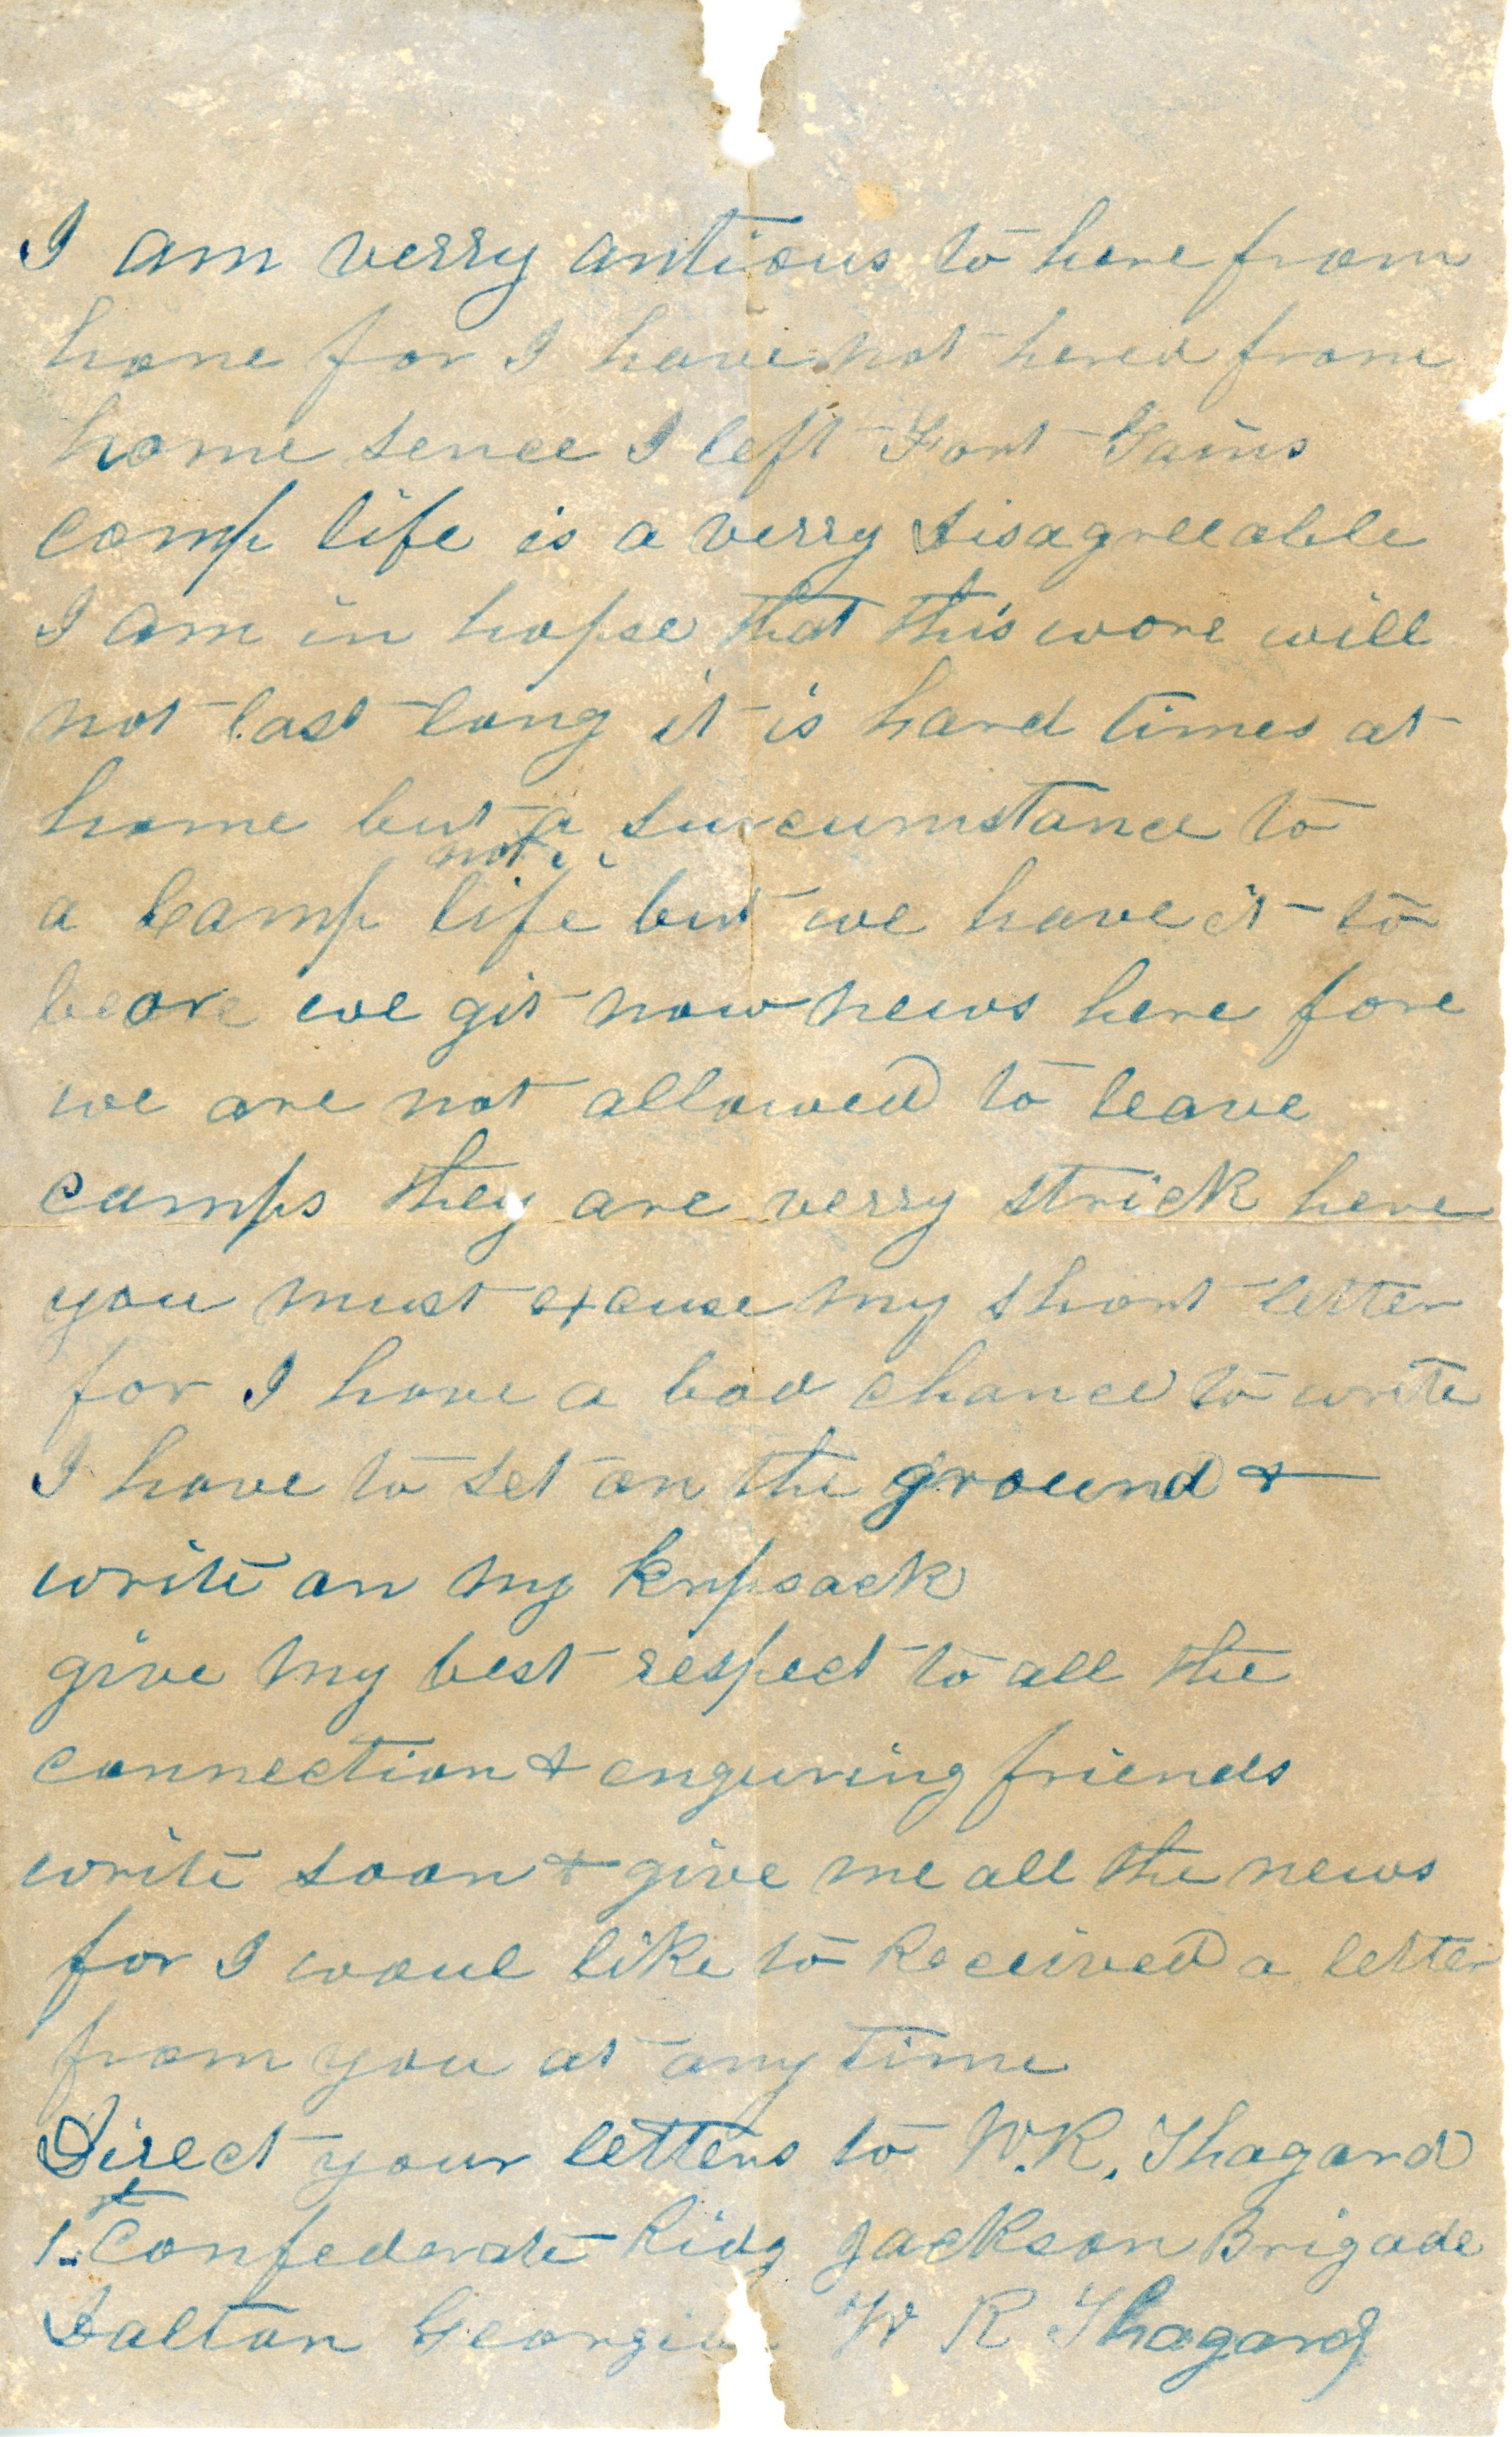 I am verry antious to here from
home for I have not hered from
home sence I left Fort Gains
camp life is a verry disagreeable
I am in hopse that this wore will
not last long it is hard times at
home but a surcumstance to
not
a Camp life but we have it to
beare we git now news here fore
we are not allowed to leave
camps they are verry strick here
you must excuse my short letter
for I have a bad chance to write
I have to set on the ground &
write on my knpsack
give my best respect to all the
connection & enquring friends
write soon & give me all the news
for I woul like to Received a letter
from you at any time
Direct your letters to W.R. Thagard
1st Confederate Ridg Jackson Brigade
Dalton Georgia W R Thagard